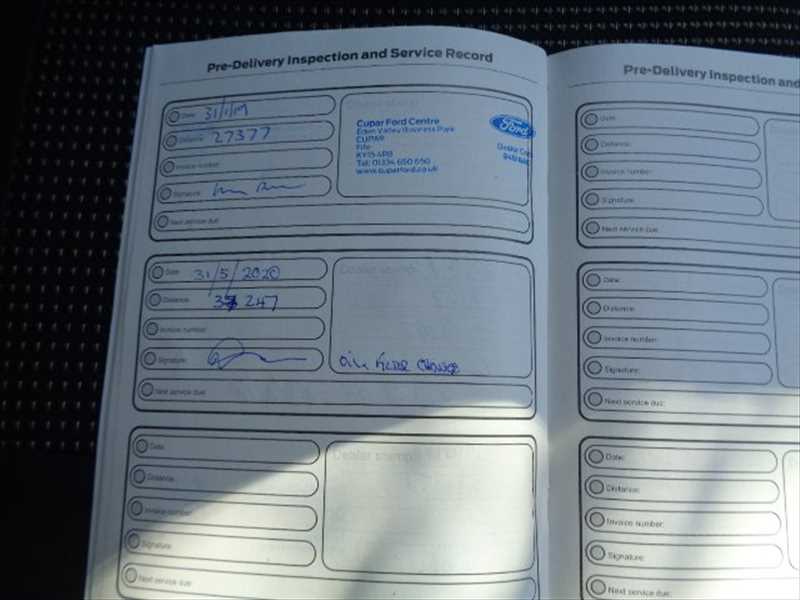 Pre-Delivery Inspection and Service Record
Date: 31/1/19
Distance: 27377
Invoice number:
Signature:
Next service due:
Dealer stamp
Cupar Ford Centre
Eden Valley Business Park
CUPAR
Fife
KY15 4RB
Tel: 01334 650 650
www.cuparford.co.uk
Ford
Date: 31/5/2020
Distance: 247
Invoice number:
Signature:
Next service due:
Dealer stamp
Oil Filter Change
Date:
Distance:
Invoice number:
Signature:
Next service due:
Dealer stamp
Pre-Delivery Inspection and
Date:
Distance:
Invoice number:
Signature:
Next service due:
Date:
Distance:
Invoice number:
Signature:
Next service due:
Date:
Distance:
Invoice number:
Signature:
Next service due: